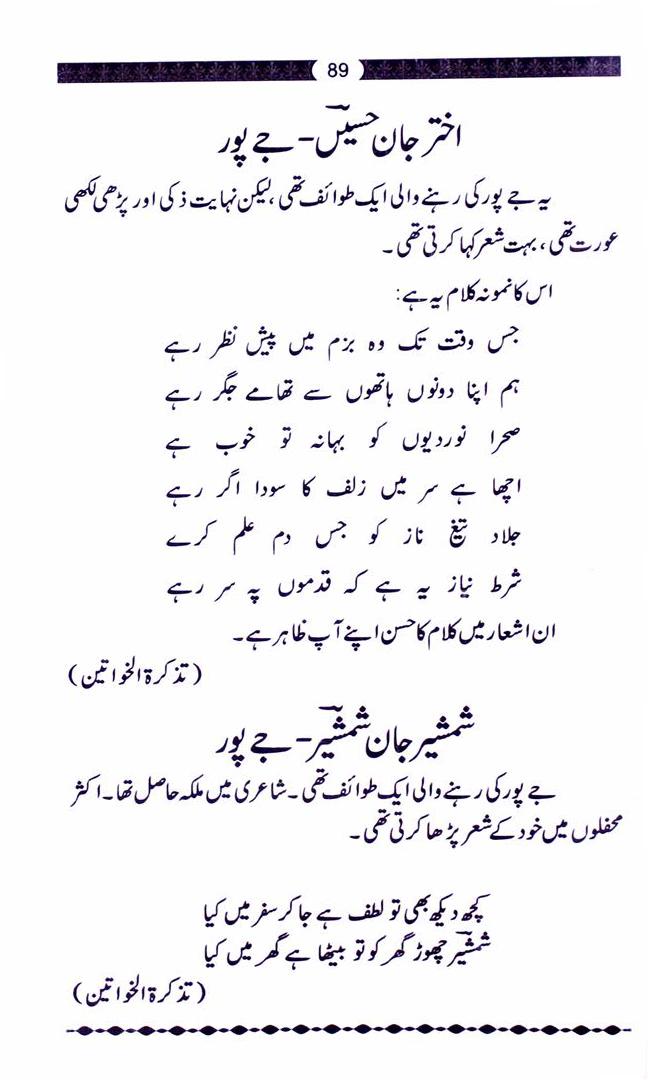 89
اختر جان حسیںؔ - جے پور
یہ جے پور کی رہنے والی ایک طوائف تھی، لیکن نہایت ذکی اور پڑھی لکھی
عورت تھی، بہت شعر کہا کرتی تھی۔
اس کا نمونہ کلام یہ ہے:
جس وقت تک وہ بزم میں پیش نظر رہے
ہم اپنا دونوں ہاتھوں سے تھامے جگر رہے
صحرا نوردیوں کو بہانہ تو خوب ہے
اچھا ہے سر میں زلف کا سودا اگر رہے
جلاد تیغ ناز کو جس دم علم کرے
شرط نیاز یہ ہے کہ قدموں پہ سر رہے
ان اشعار میں کلام کا حسن اپنے آپ ظاہر ہے۔
(تذکرۃ الخواتین)
شمشیر جان شمشیرؔ - جے پور
جے پور کی رہنے والی ایک طوائف تھی۔ شاعری میں ملکہ حاصل تھا۔ اکثر
محفلوں میں خود کے شعر پڑھا کرتی تھی۔
کچھ دیکھ بھی تو لطف ہے جا کر سفر میں کیا
شمشیرؔ چھوڑ گھر کو تو بیٹھا ہے گھر میں کیا
(تذکرۃ الخواتین)